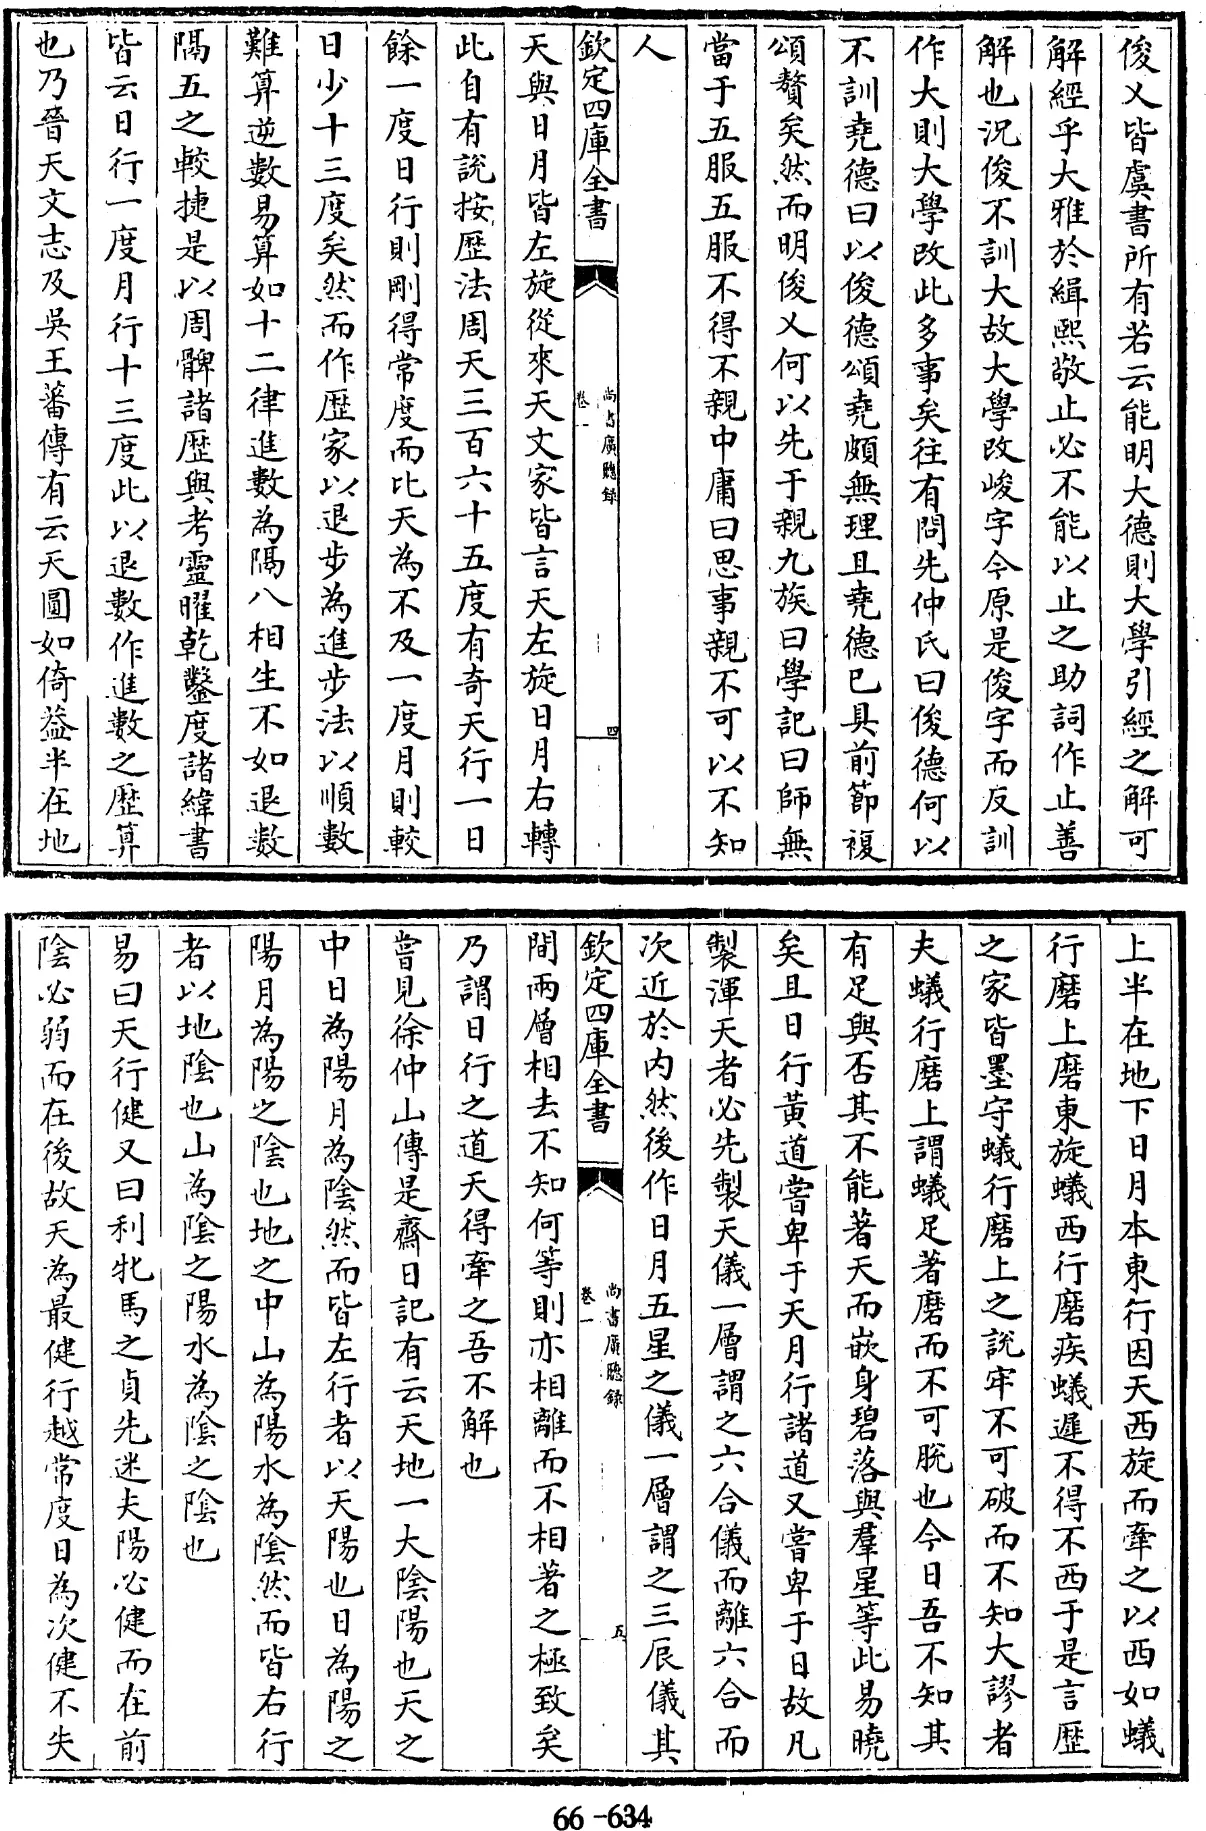 俊乂皆虞書所有若云能明大德則大學引經之解可
解經乎大雅於緝熙敬止必不能以止之助詞作止善
解也況俊不訓大故大學改峻字今原是俊字而反訓
作大則大學改此多事矣往有問先仲氏曰俊德何以
不訓堯德曰以俊德頌堯頗無理且堯德已具前節複
頌贅矣然而明俊乂何以先于親九族曰學記曰師無
當于五服五服不得不親中庸曰思事親不可以不知
人
欽定四庫全書
尚書廣聽錄
卷一
四
天與日月皆左旋從來天文家皆言天左旋日月右轉
此自有説按歷法周天三百六十五度有奇天行一日
餘一度日行則剛得常度而比天為不及一度月則較
日少十三度矣然而作歷家以退步為進步法以順數
難算逆數易算如十二律進數為隔八相生不如退數
隔五之較捷是以周髀諸歷與考靈曜乾鑿度諸緯書
皆云日行一度月行十三度此以退數作進數之歷算
也乃晉天文志及吳王蕃傳有云天圓如倚葢半在地
上半在地下日月本東行因天西旋而牽之以西如蟻
行磨上磨東旋蟻西行磨疾蟻遲不得不西于是言歷
之家皆墨守蟻行磨上之説牢不可破而不知大謬者
夫蟻行磨上謂蟻足著磨而不可脱也今日吾不知其
有足與否其不能著天而嵌身碧落與羣星等此易曉
矣且日行黃道嘗卑于天月行諸道又嘗卑于日故凡
製渾天者必先製天儀一層謂之六合儀而離六合而
次近於内然後作日月五星之儀一層謂之三辰儀其
欽定四庫全書
尚書廣聽錄
卷一
五
間兩層相去不知何等則亦相離而不相著之極致矣
乃謂日行之道天得牽之吾不解也
嘗見徐仲山傳是齋日記有云天地一大陰陽也天之
中日為陽月為陰然而皆左行者以天陽也日為陽之
陽月為陽之陰也地之中山為陽水為陰然而皆右行
者以地陰也山為陰之陽水為陰之陰也
易曰天行健又曰利牝馬之貞先迷夫陽必健而在前
陰必弱而在後故天為最健行越常度日為次健不失
66-634